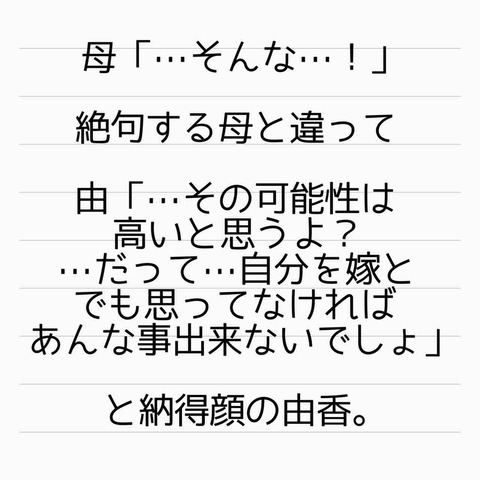 母「…そんな…！」
絶句する母と違って
由「…その可能性は
高いと思うよ？
…だって…自分を嫁と
でも思ってなければ
あんな事出来ないでしょ」
と納得顔の由香。